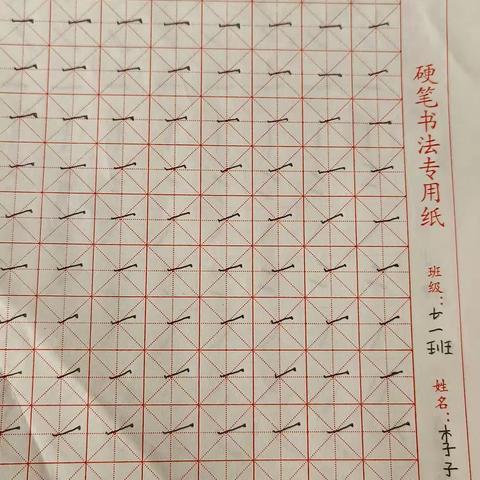 硬笔书法专用纸
班级：七一班
姓名：李子